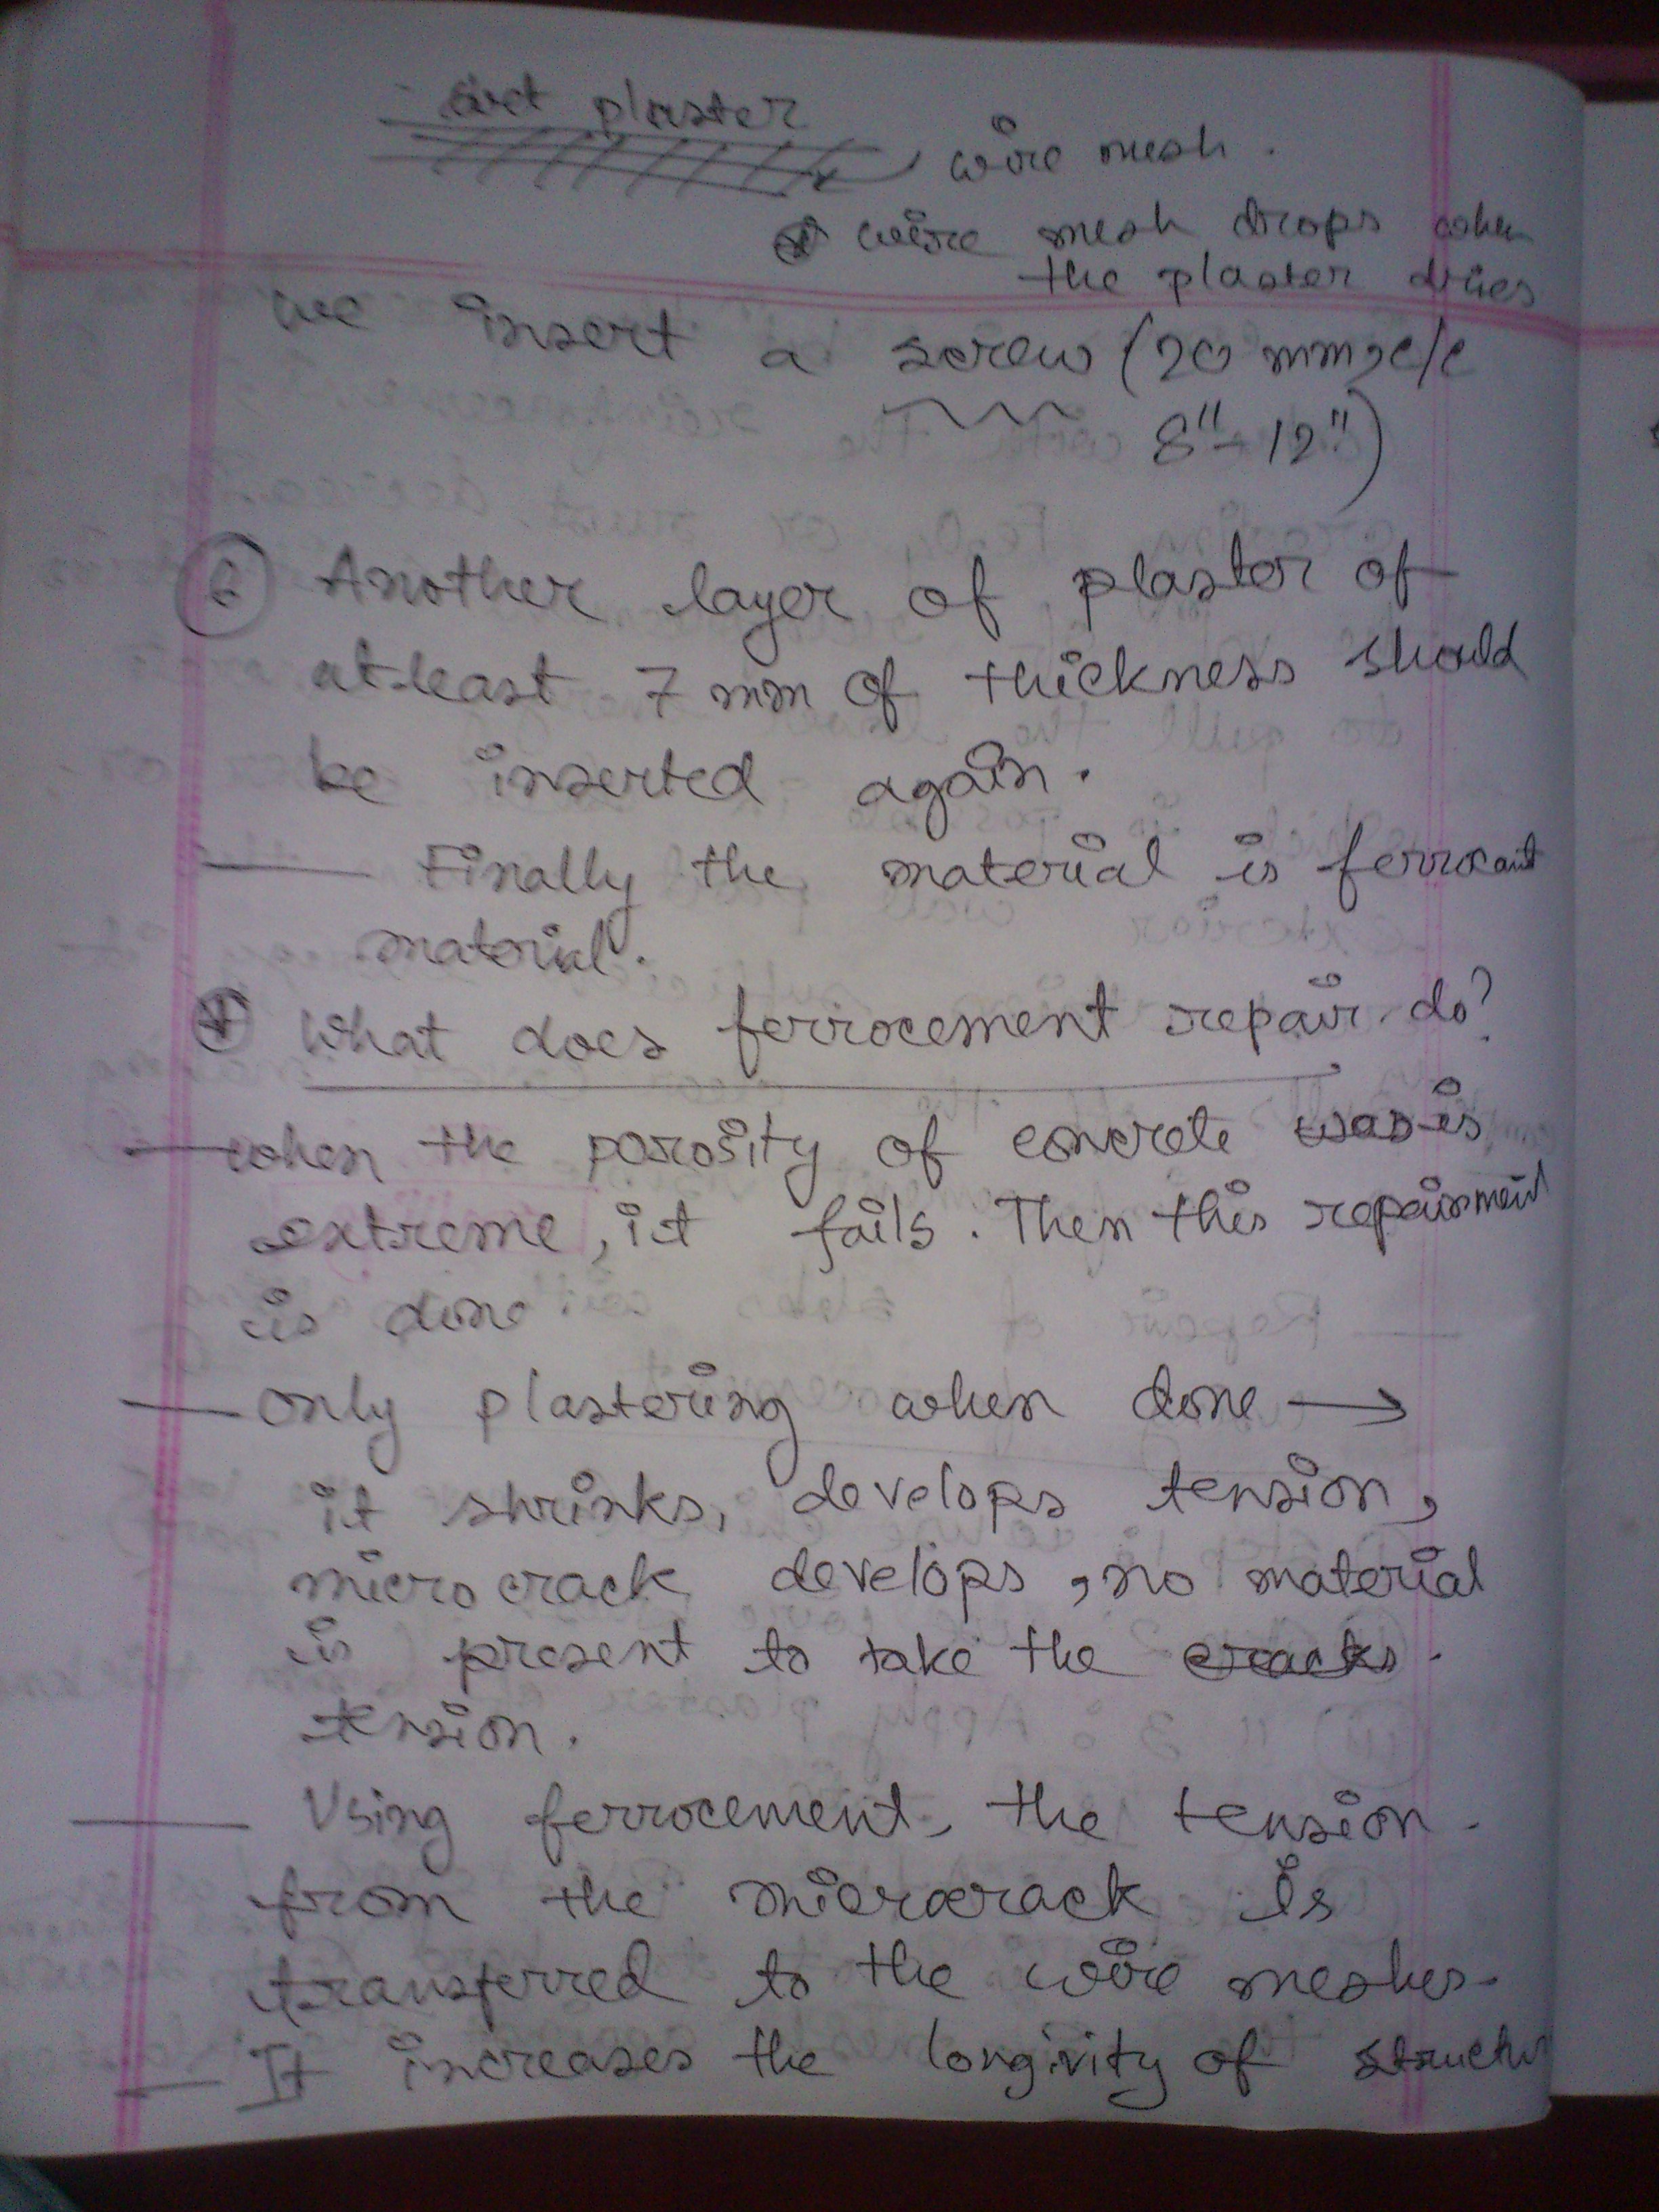 wet plaster
wire mesh.
wire mesh drops when
the plaster dries
we insert a screw (20 mm, c/c
8" - 12")
6 Another layer of plaster of
at-least 7 mm of thickness should
be inserted again.
— Finally the material is
material.
What does ferrocement repair do?
— when the porosity of concrete was is
extreme, it fails. Then this repairment
is done
— only plastering when done →
it shrinks, develops tension,
micro crack develops, no material
is present to take the cracks.
tension.
— Using ferrocement, the tension
from the microcrack is
transferred to the wire meshes.
— It increases the longivity of structu